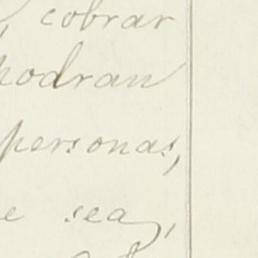 , cobrar
podran
personas,
e sea,